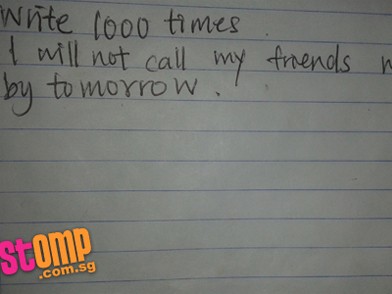 Write 1000 times.
I will not call my friends
by tomorrow.
stomp
.com.sg